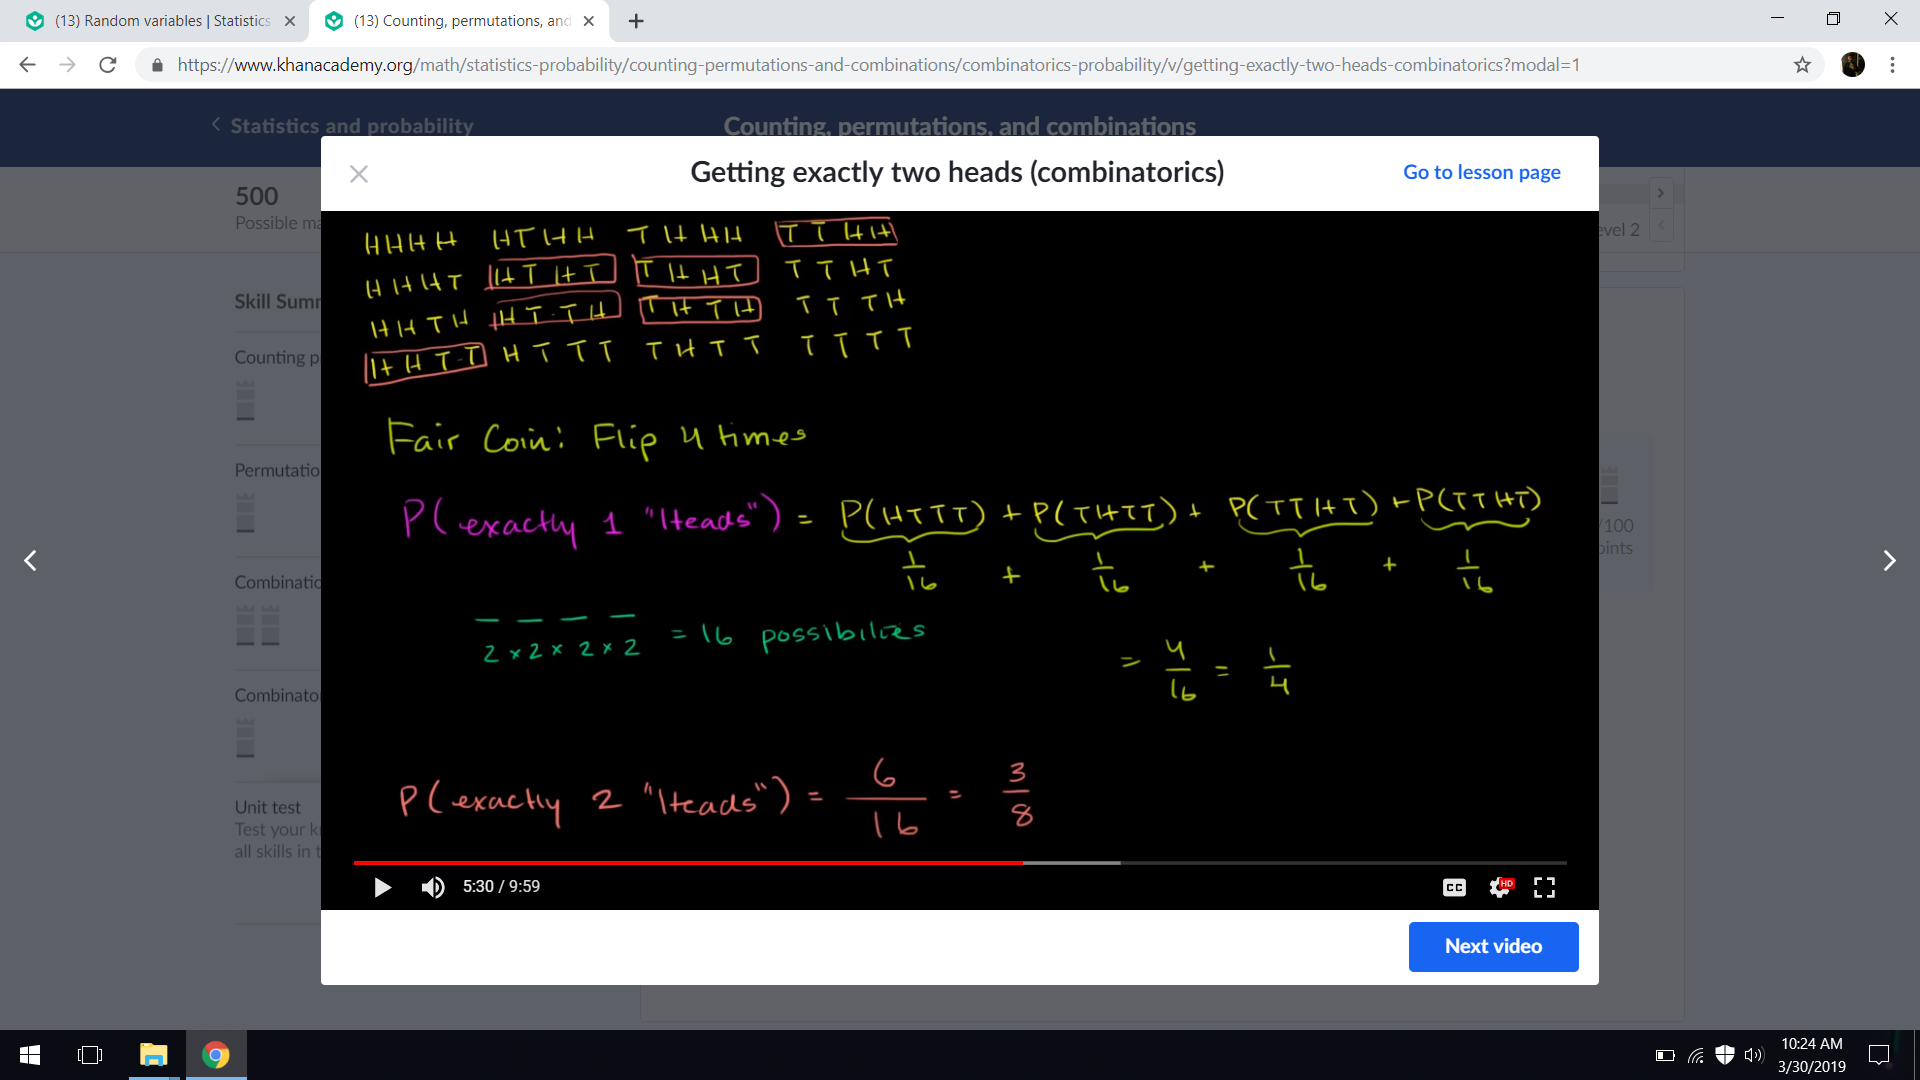 (13) Random variables | Statistics
(13) Counting, permutations, and
https://www.khanacademy.org/math/statistics-probability/counting-permutations-and-combinations/combinatorics-probability/v/getting-exactly-two-heads-combinatorics?modal=1
Statistics and probability
Counting, permutations, and combinations
Getting exactly two heads (combinatorics)
Go to lesson page
500
Possible ma
evel 2
Skill Summ
Counting p
Permutatio
Combinatio
Combinator
Unit test
Test your k
all skills in t
/100
oints
HHHH HTHH THHH TTHH
HHHT HTHT THHT TTHT
HHTH HTTH THTH TTTH
HHTT HTTT THTT TTTT
Fair Coin: Flip 4 times
P(exactly 1 "Heads") = P(HTTT) + P(THTT) + P(TTHT) + P(TTHT)
1/16 + 1/16 + 1/16 + 1/16
2 × 2 × 2 × 2 = 16 possibilities
= 4/16 = 1/4
P(exactly 2 "Heads") = 6/16 = 3/8
5:30 / 9:59
CC
HD
Next video
10:24 AM
3/30/2019